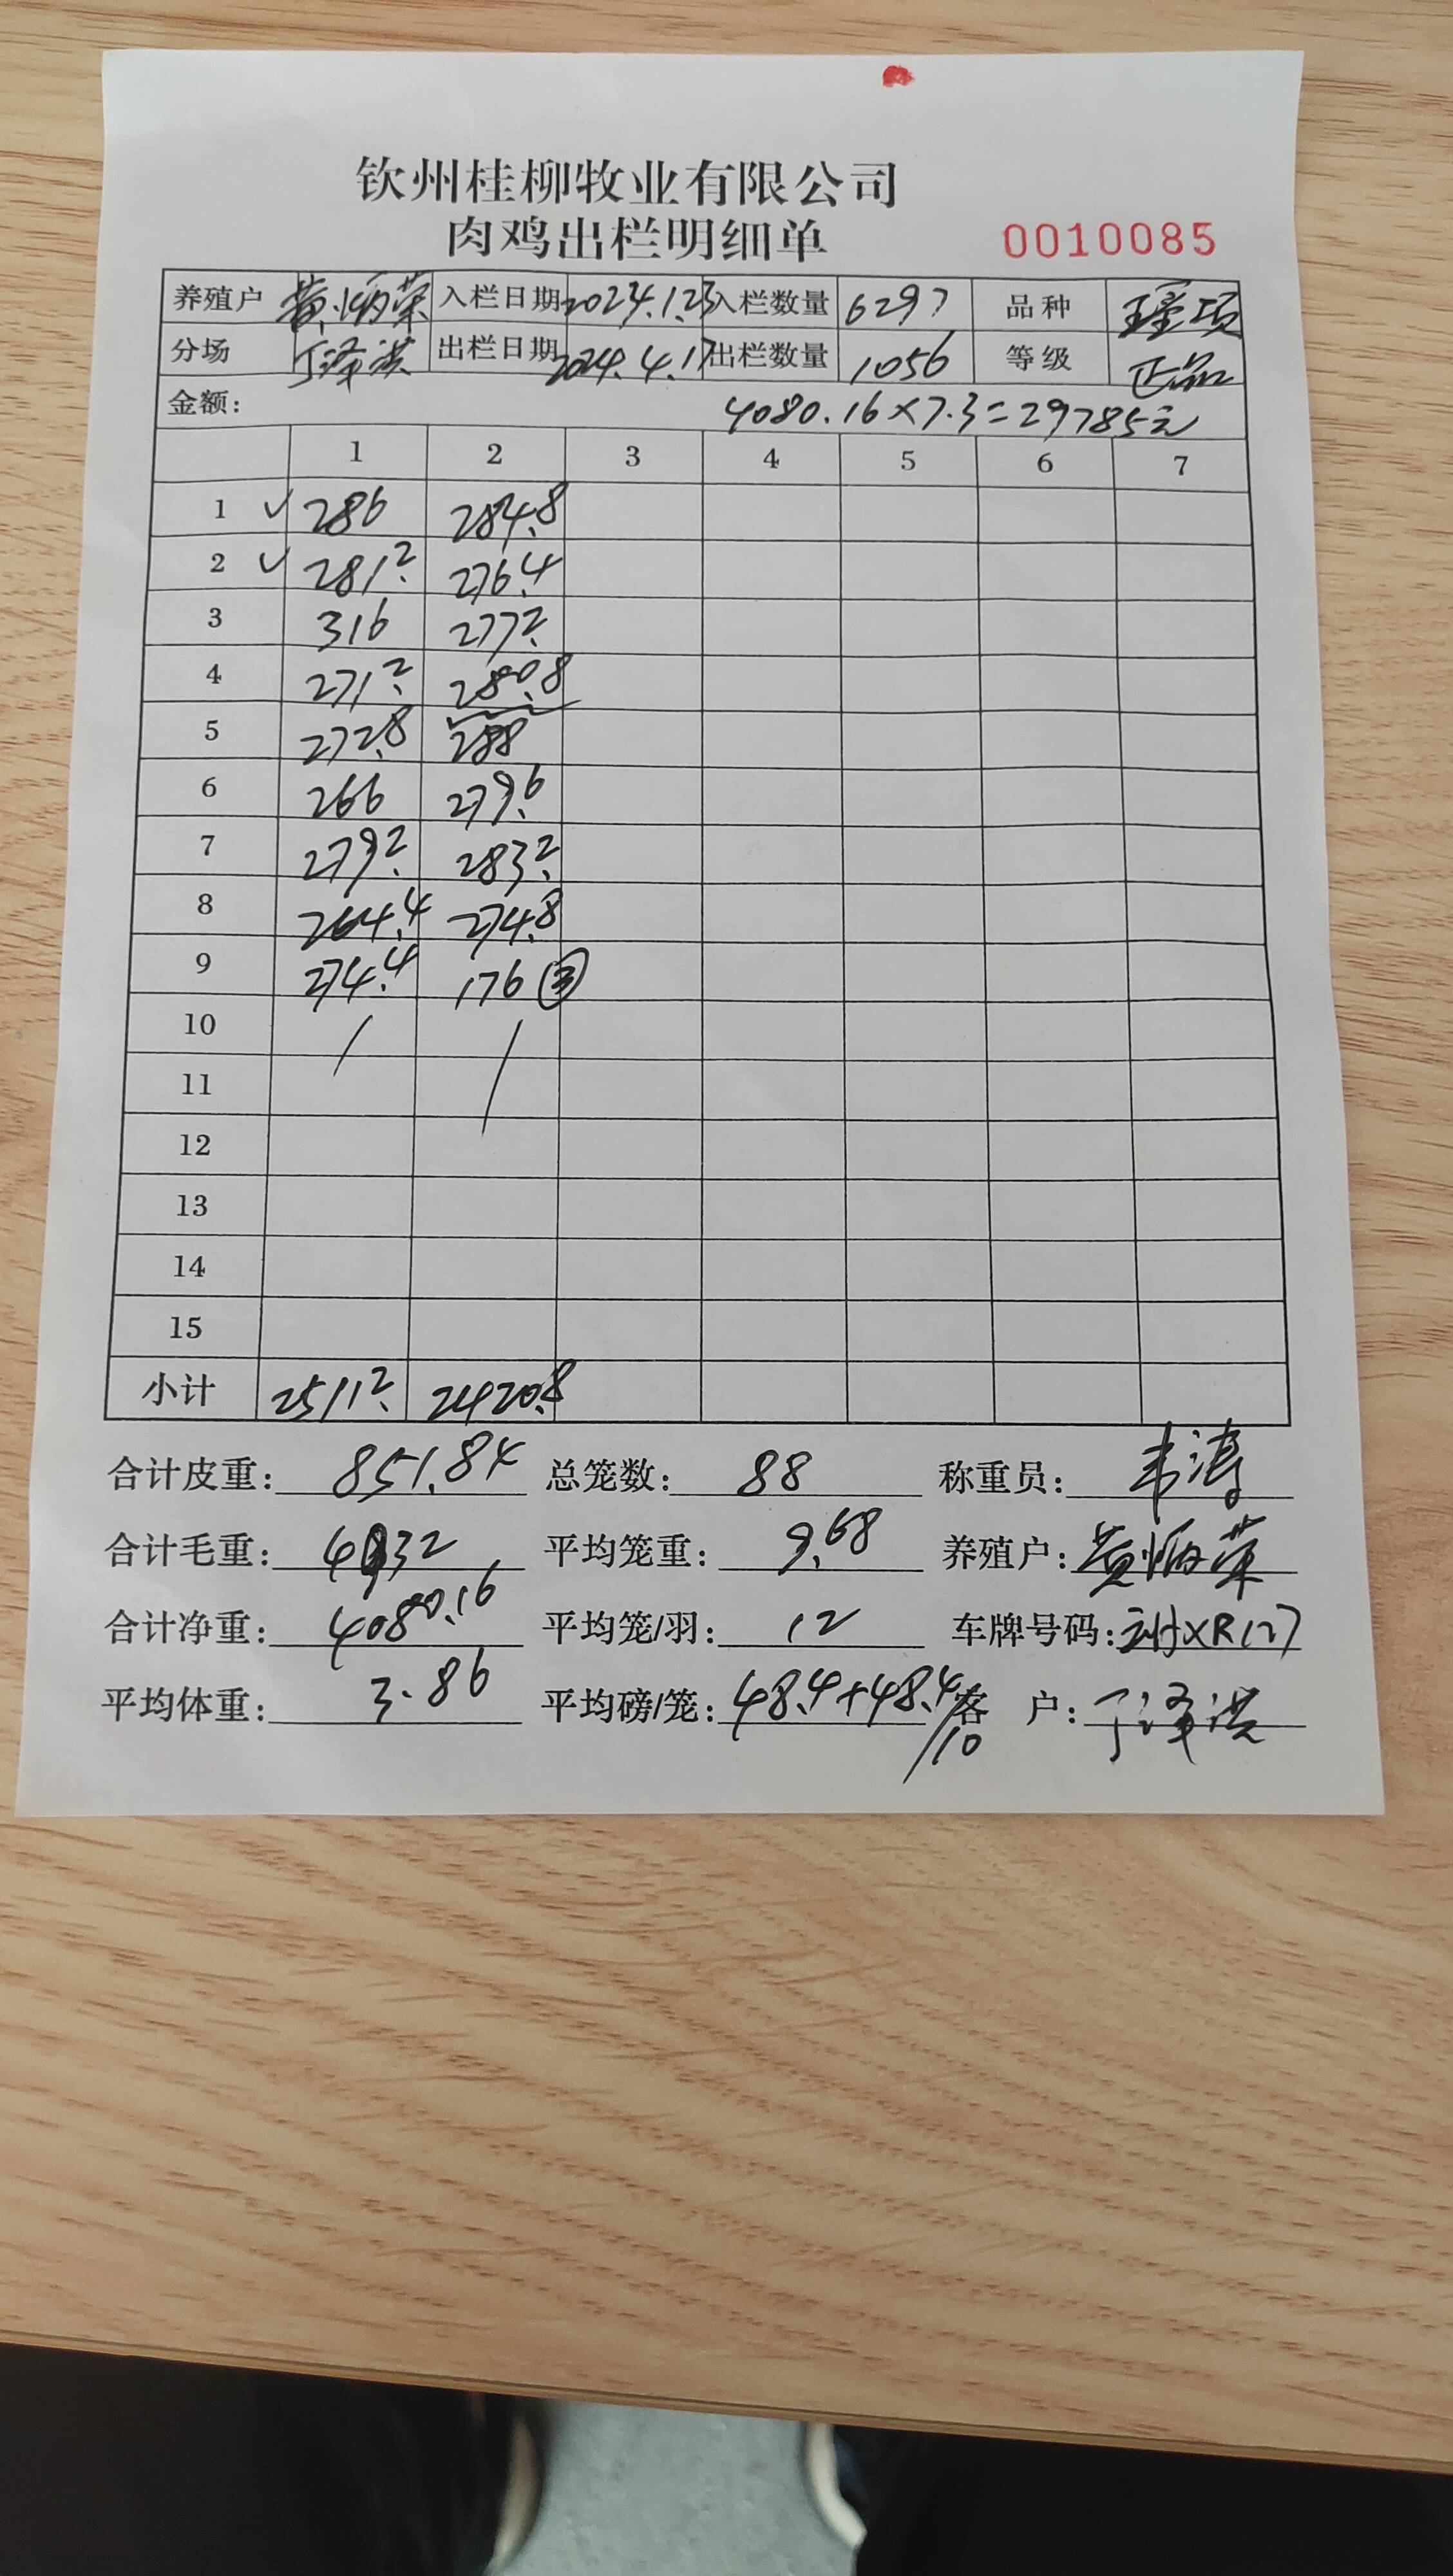 钦州桂柳牧业有限公司
肉鸡出栏明细单 0010085
养殖户 黄炳荣 入栏日期 2024.1.23 入栏数量 6297 品种 瑶项
分场 丁泽洪 出栏日期 2024.4.17 出栏数量 1056 等级 正品
金额: 4080.16×7.3=29785元
1 2 3 4 5 6 7
1 ✓ 286 284.8
2 ✓ 281.2 276.4
3 316 277.2
4 271.2 280.8
5 272.8 288
6 266 279.6
7 279.2 283.2
8 264.4 274.8
9 274.4 176
10
11
12
13
14
15
小计 2511.2 2420.8
合计皮重: 851.84 总笼数: 88 称重员: 韦涛
合计毛重: 4932 平均笼重: 9.68 养殖户: 黄炳荣
合计净重: 4080.16 平均笼/羽: 12 车牌号码:
平均体重: 3.86 平均磅/笼: 48.4+48.4/10 客 户: 丁泽洪